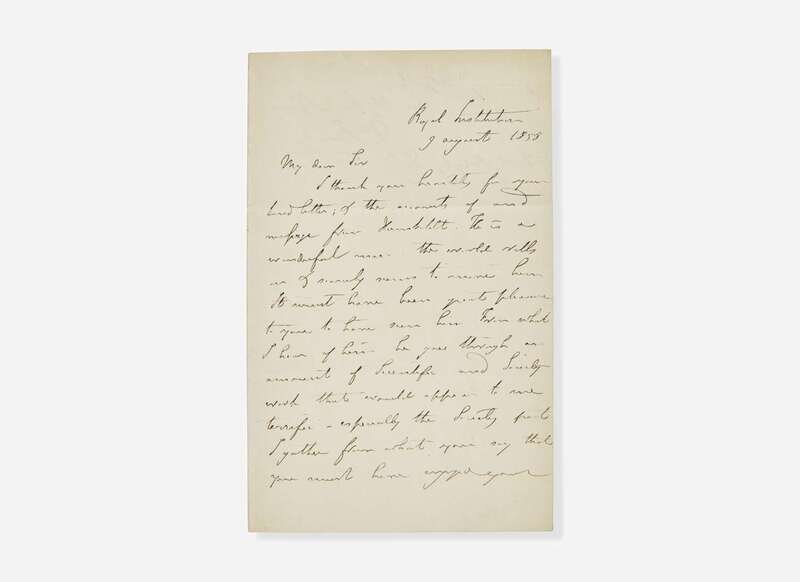 Royal Institution
9 August 1855
My dear Sir
I thank you heartily for your
kind letter; & the accounts of and
message from Humboldt. He is a
wonderful man the world rolls
on & scarcely seems to move him
It must have been great pleasure
to you to have seen him From what
I hear of him he goes through an
amount of Scientific and Society
work that would appear to me
terrific - especially the Society part
I gather from what you say that
you must have enjoyed your